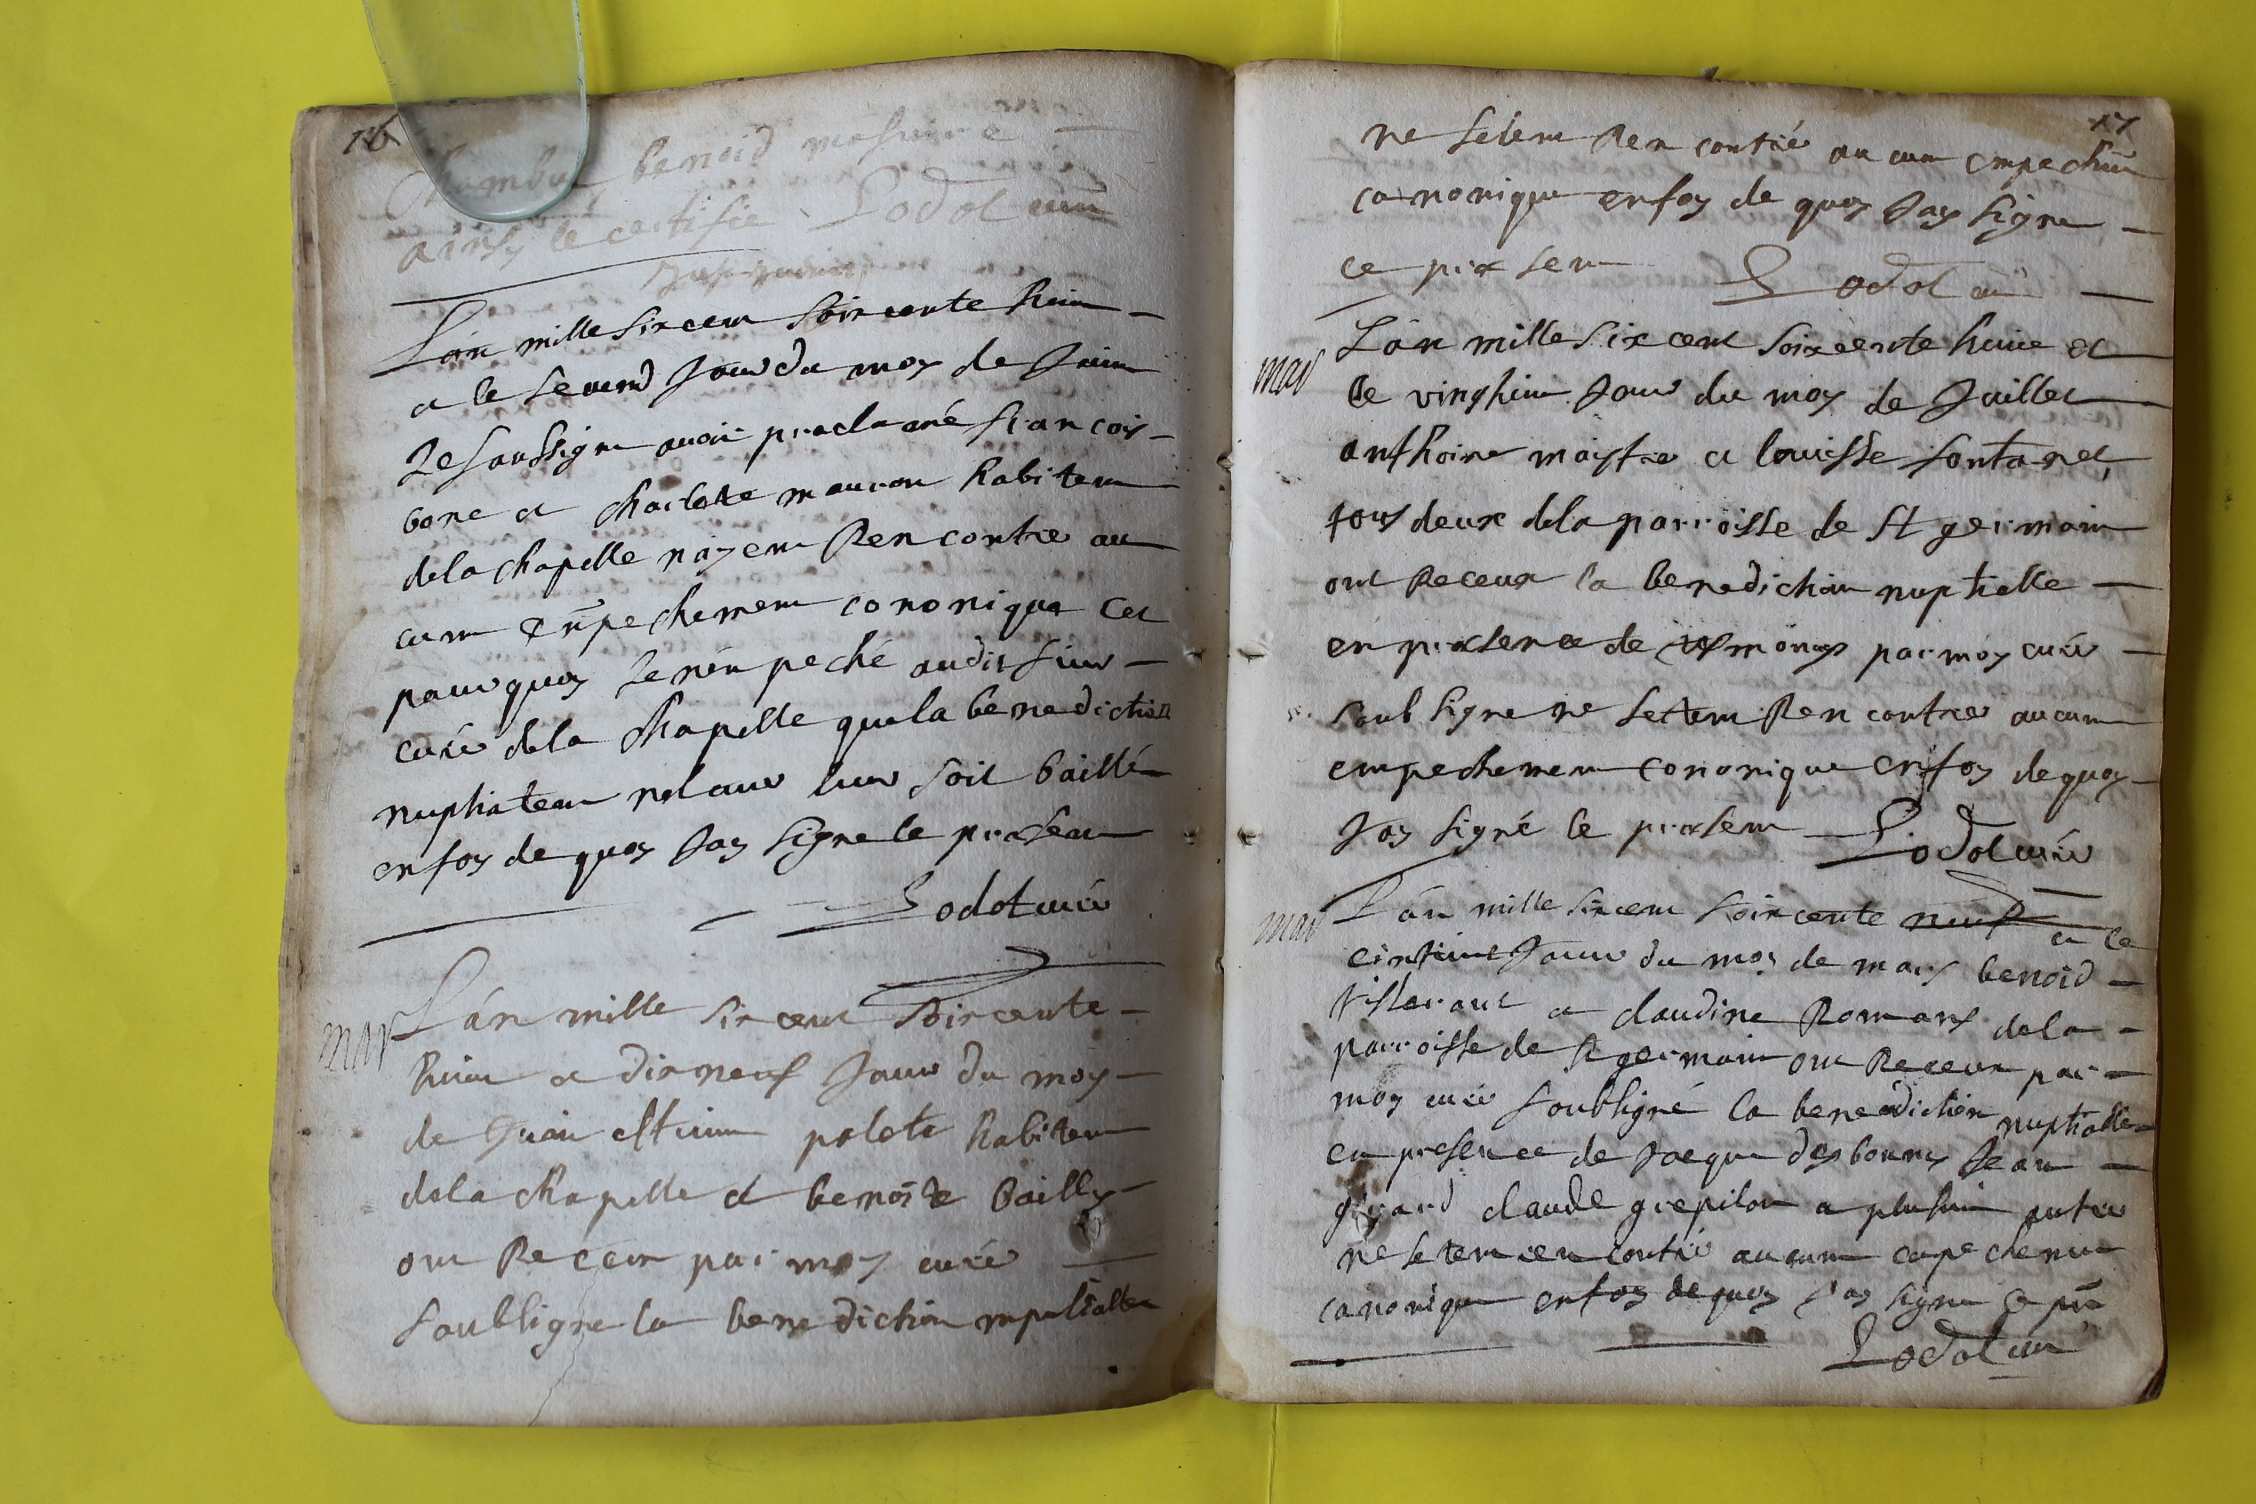 16
benoid
ainsy le certifie Lodot curé
L'an mille sixcent soixcente huit
et le segond Jour du moy de Juin
Je soussigne avoir proclamé francois
bone et charlotte mauron habitent
dela chapelle nayent Rencontre au
cum empechement cononique Cet
pourquoy Je nenpeché audit sieur
curé dela chapelle quela benediction
nuptiale leur soit baillé
enfoy de quoy Jay signe le present
Lodot curé
mar L'an mille sixcent soixcente
huit et dixneuf Jour du moy
de Juin polete habitent
dela chapelle et benoite bailly
ont Receu par moy curé
soubsigne la benediction nuptialle
17
ne setent Rencontré aucum empechmt
canonique enfoy de quoy Jay signe
ce present Lodot curé
mar L'an mille sixcent soixcente huit et
le vinghuit Jour du moy de Juillet
anthoine maistre et louisse fontanet
tous deux dela parroisse de St germain
ont Receux la benediction nuptialle
en presence de tesmoings par moy curé
soubsigne ne setent Rencontre aucum
empechement cononique enfoy dequoy
Jay signé le present Lodot curé
mar L'an mille sixcent soixcente neuf et ce
Jour du moy de mars benoid
et claudine Romans dela
parroisse de St germain ont Receux par
moy curé soubsigné la benediction nuptialle
en presence de Jacque desbonnes Jean
girard claude grepilon et plusieur autre
ne setent rencontré aucum empechement
canonique enfoy dequoy j'ay signe ce pnt
Lodot curé